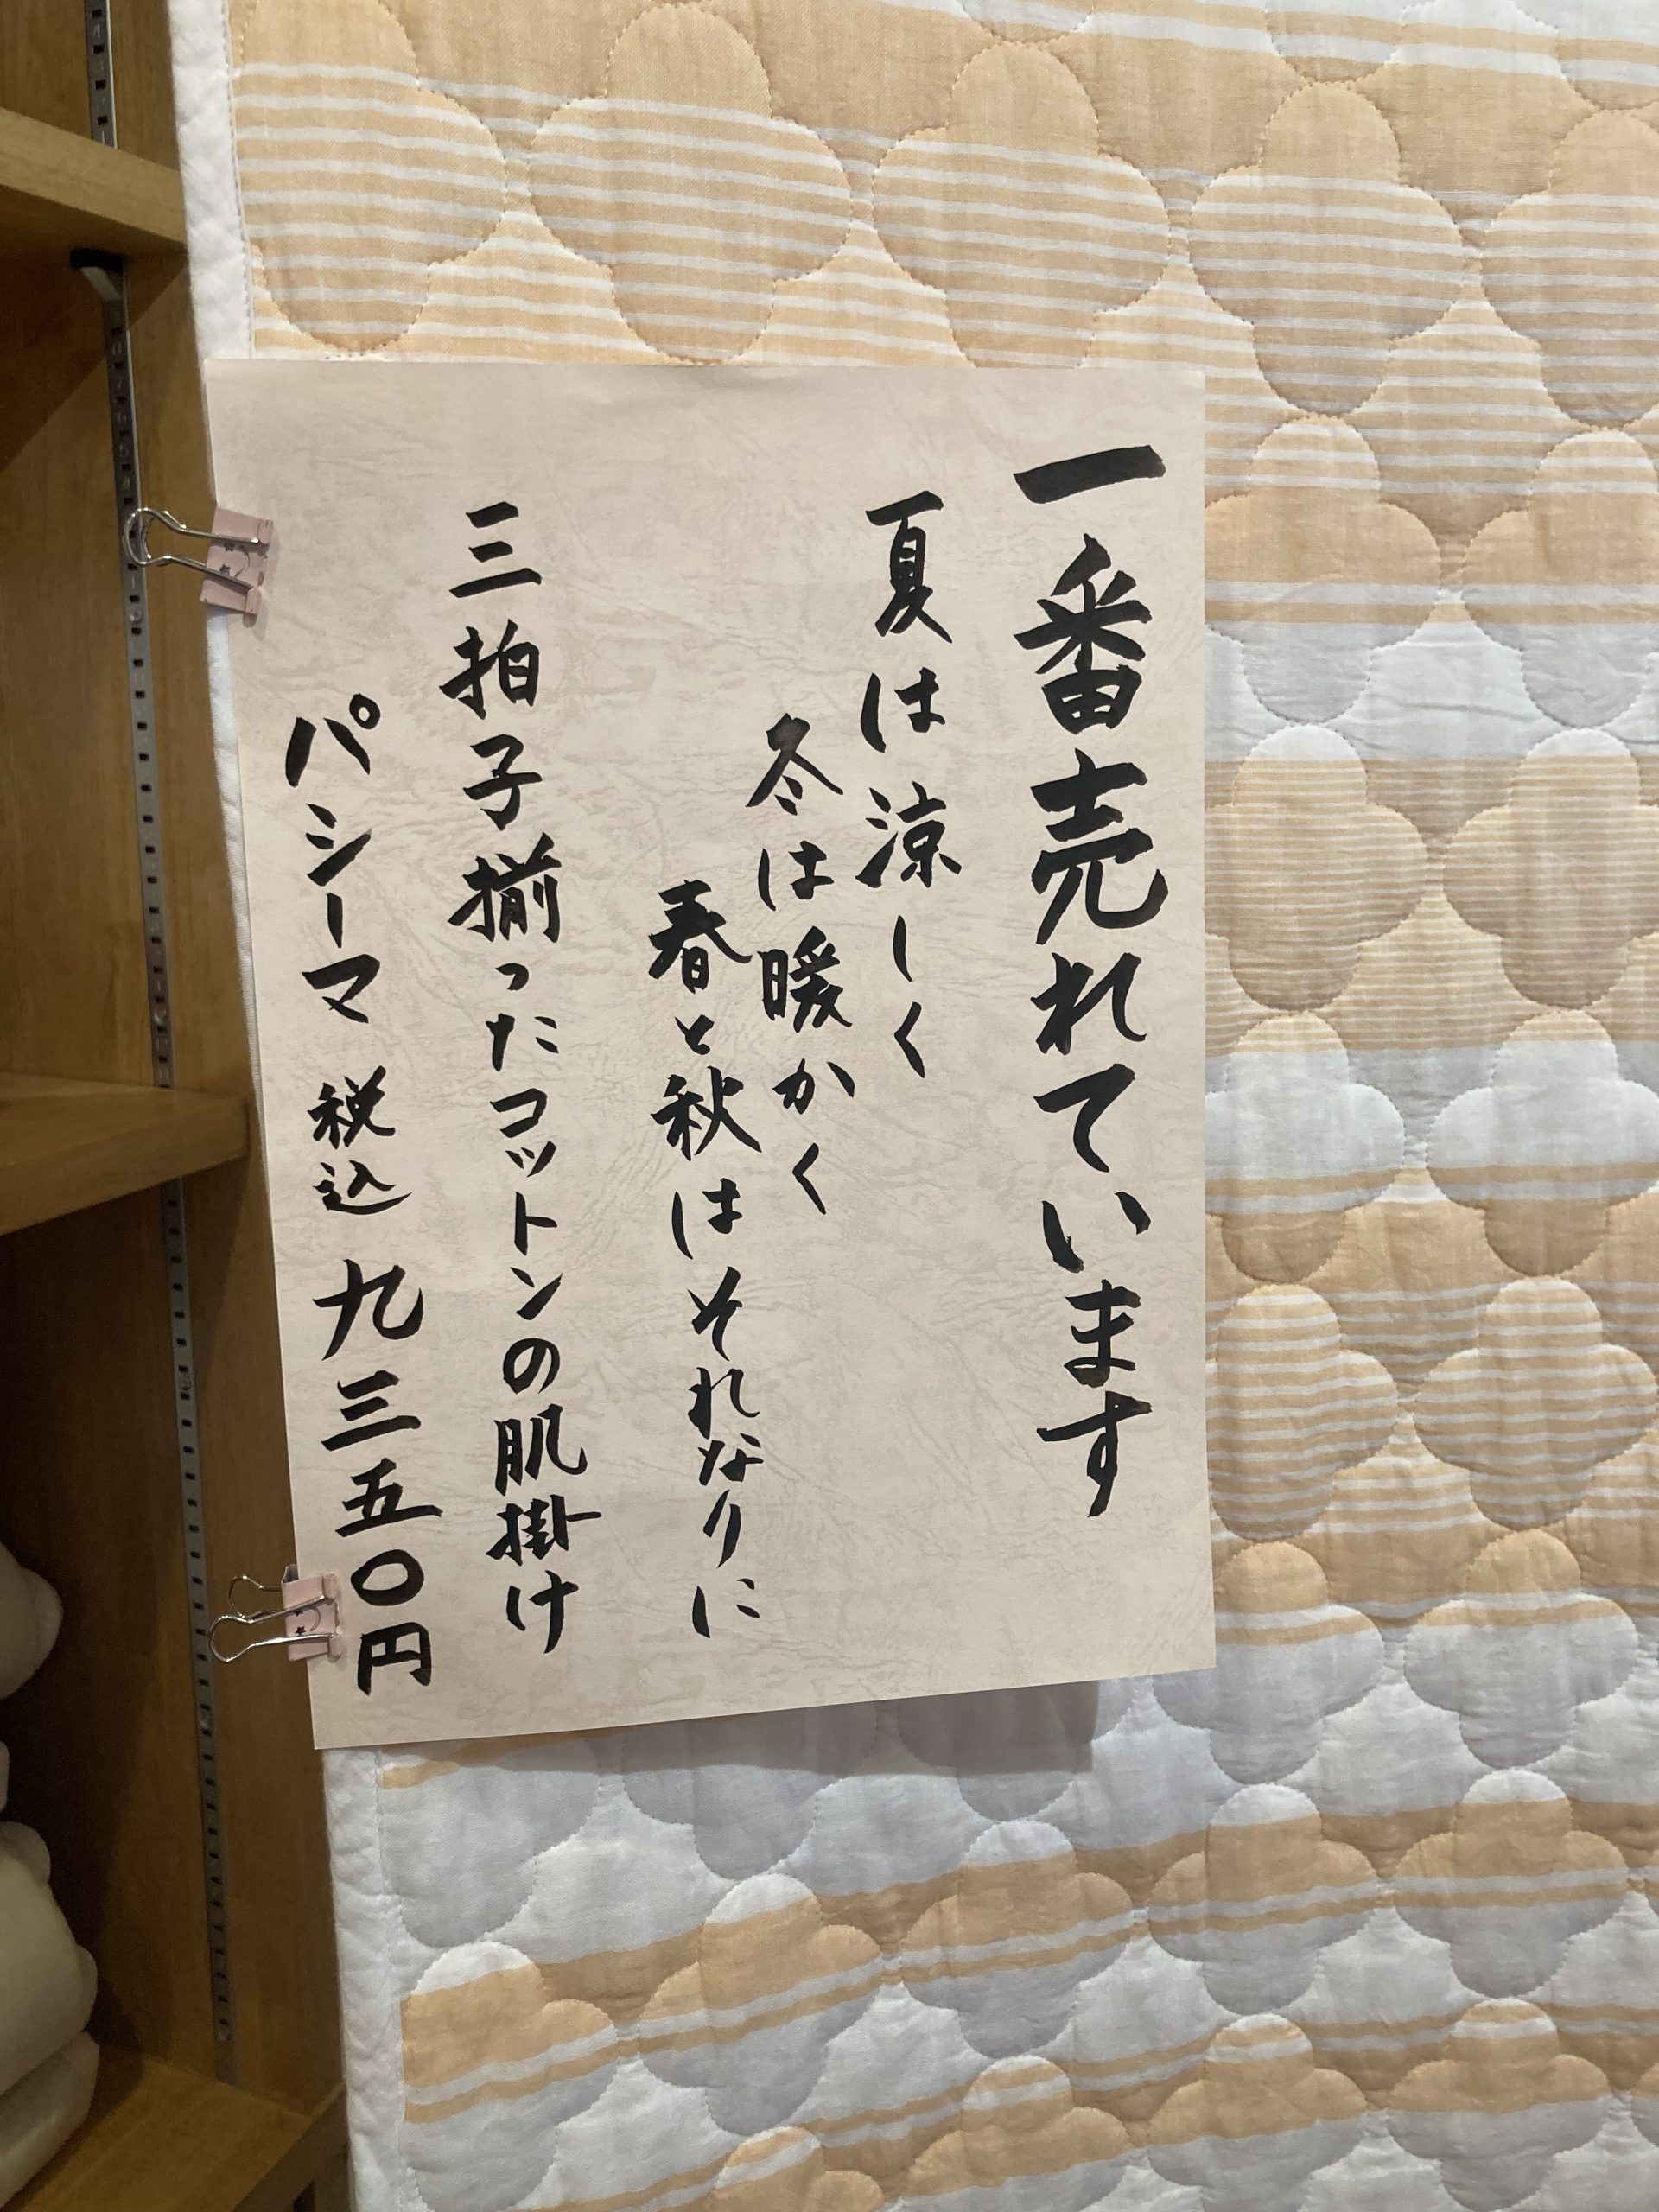 一番売れています
夏は涼しく
冬は暖かく
春と秋はそれなりに
三拍子揃ったコットンの肌掛け
パシーマ 税込 九三五〇円